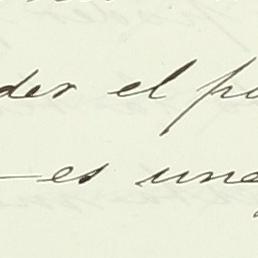 der el pa
—es una